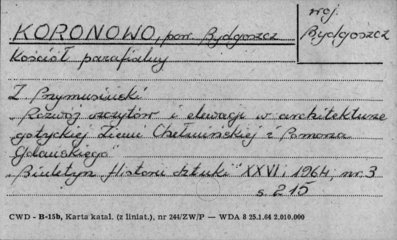 KORONOWO, pow. Bydgoszcz
woj. Bydgoszcz
Kościół parafialny
Z Przymusiński
„Rozwój szczytów i elewacji w architekturze
gotyckiej Ziemi Chełmińskiej i Pomorza
Gdańskiego"
„Biuletyn Historii Sztuki" XXVI, 1964, nr. 3
s. 215
CWD - B-15b, Karta katal. (z liniat.), nr 244/ZW/P — WDA 8 25.1.64 2.010.000